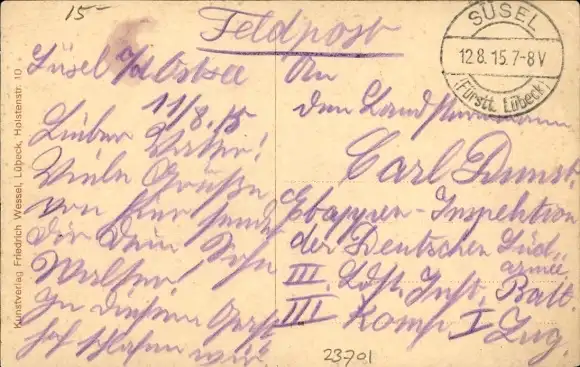 15-
Feldpost
SÜSEL
12.8.15.7-8V
(Fürstt. Lübeck)
Süsel a/d Ostsee
11/8.15
Lieber Vater!
Viele Grüße
von hier sendet
Dir Dein Sohn
Walter.
In diesem Gast-
hof schlafen wir.
An
den Landsturmmann
Carl Dunst
Etappen-Inspektion
der Deutschen Süd-
armee,
III. Ldst. Inft. Batl.
III Komp I Zug.
23701
Kunstverlag Friedrich Wessel, Lübeck, Holstenstr. 10